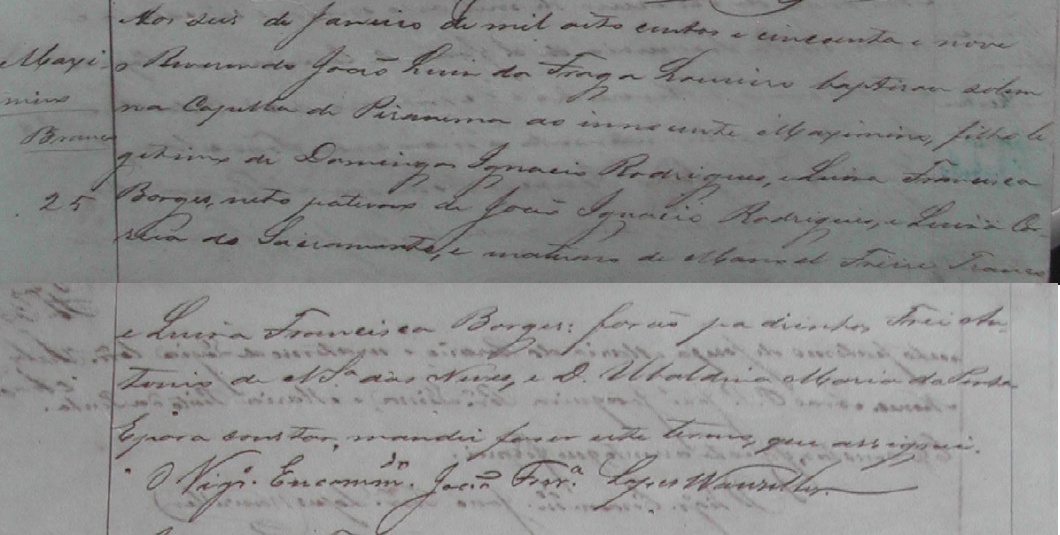 Aos seis de Janeiro de mil oito centos e cincoenta e nove
Maxi-
o Reverendo João Luiz da Fraga Loureiro baptisou solem
mino
na Capella de Piranema ao innocente Maximino, filho le
Branco
gitimo de Domingos Ignacio Rodrigues, e Luiza Francisca
25
Borges, neto paterno de João Ignacio Rodrigues, e Luiza Cor-
reia do Sacramento, e materno de Manoel Freire Franco
e Luiza Francisca Borges: forão padrinhos Frei An-
tonio de N.ª das Neves, e D. Ubaldina Maria da Penha
E para constar mandei fazer este termo, que assignei.
O Vigr.º Encomm.do João Ferr.ª Lopes Wanzeller